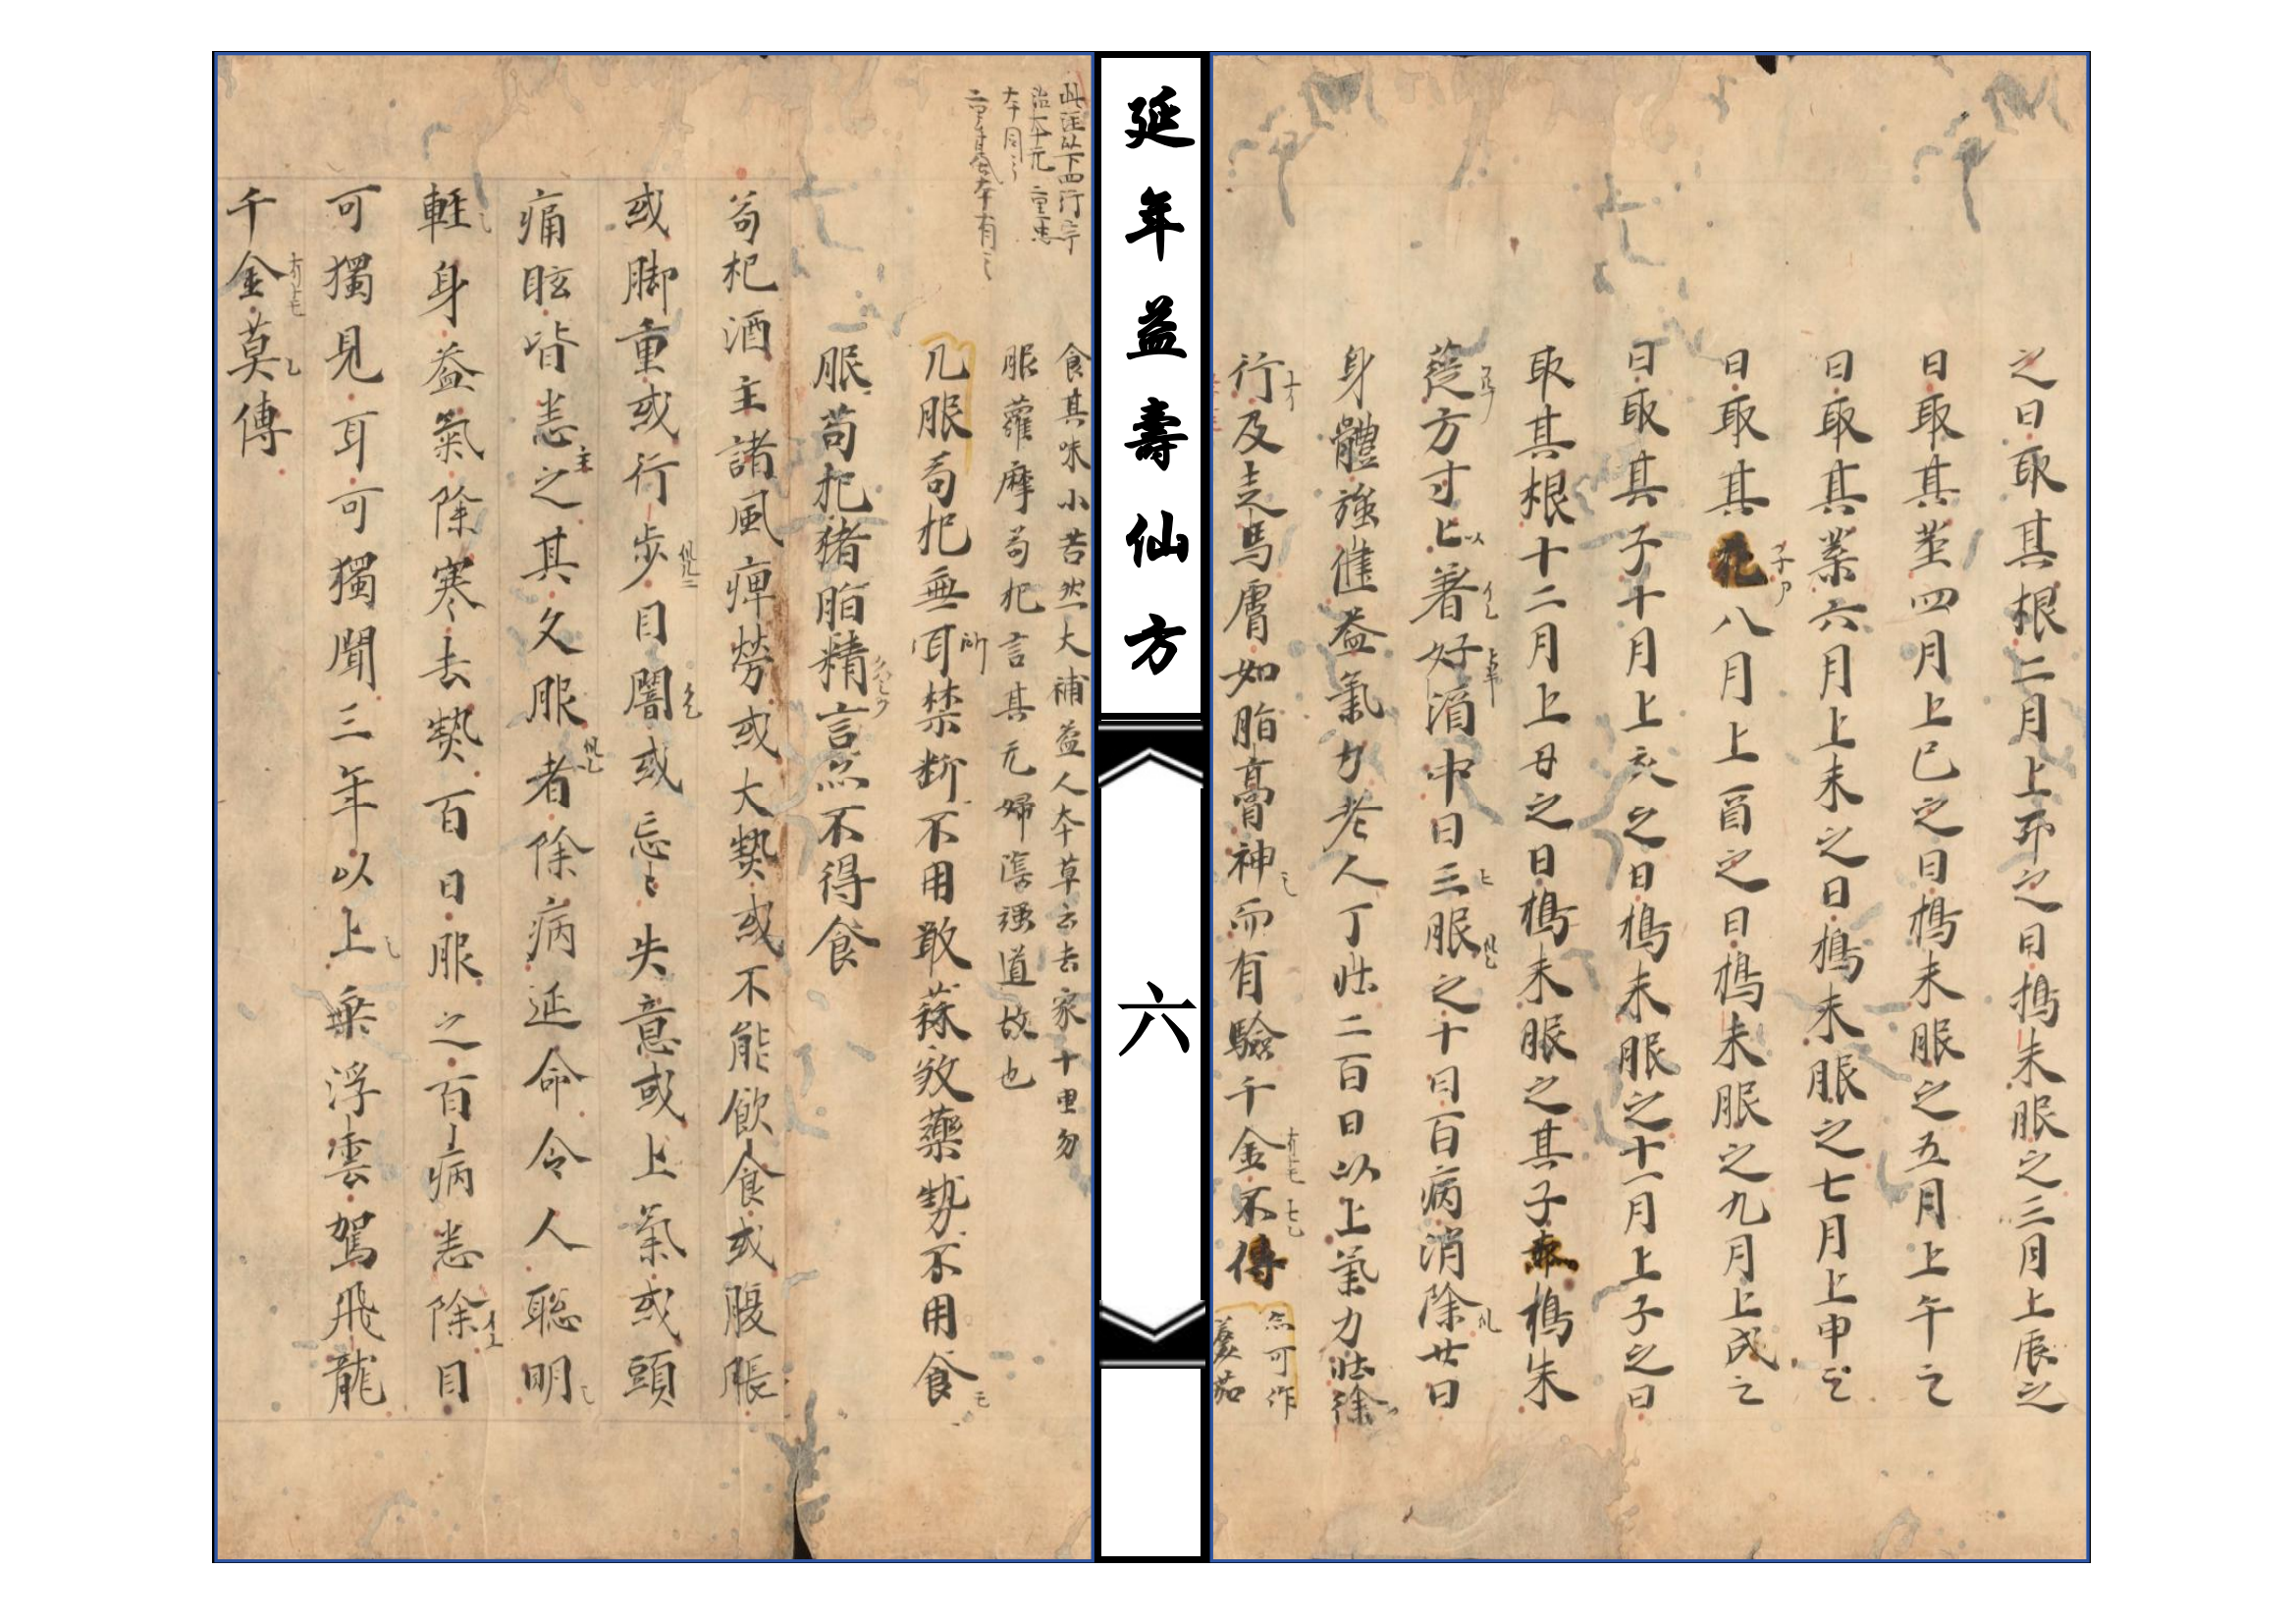 之日取其根二月上卯之日擣末服之三月上辰之
日取其莖四月上巳之日擣末服之五月上午之
日取其葉六月上未之日擣末服之七月上申之
日取其花八月上酉之日擣末服之九月上戌之
日取其子十月上亥之日擣末服之十一月上子之日
取其根十二月上丑之日擣末服之其子赤擣末
蓰方寸匕著好酒中日三服之十日百病消除廿日
身體強健益氣力老人丁壯二百日以上氣力壯徐
行及走馬膚如脂膏神而有驗千金不傳
亦可作
羹茹
延年益壽仙方
六
此注以下四行宇
治本元
本同之
食其味小苦然大補益人本草云去家十里勿
服蘿摩苟杞言其无婦隂强道故也
凡服苟杞無所禁斷不用敢蒜敓藥勢不用食
服苟杞猪脂精言亦不得食
苟杞酒主諸風痺勞或大熱或不能飲食或腹脹
或脚重或行步目闇或忘〻失意或上氣或頭
痛眩皆悉主之其久服者除病延命令人聡明
輊身益氣除寒去熱百日服之百病悉除目
可獨見耳可獨聞三年以上乗浮雲駕飛龍
千金莫傳